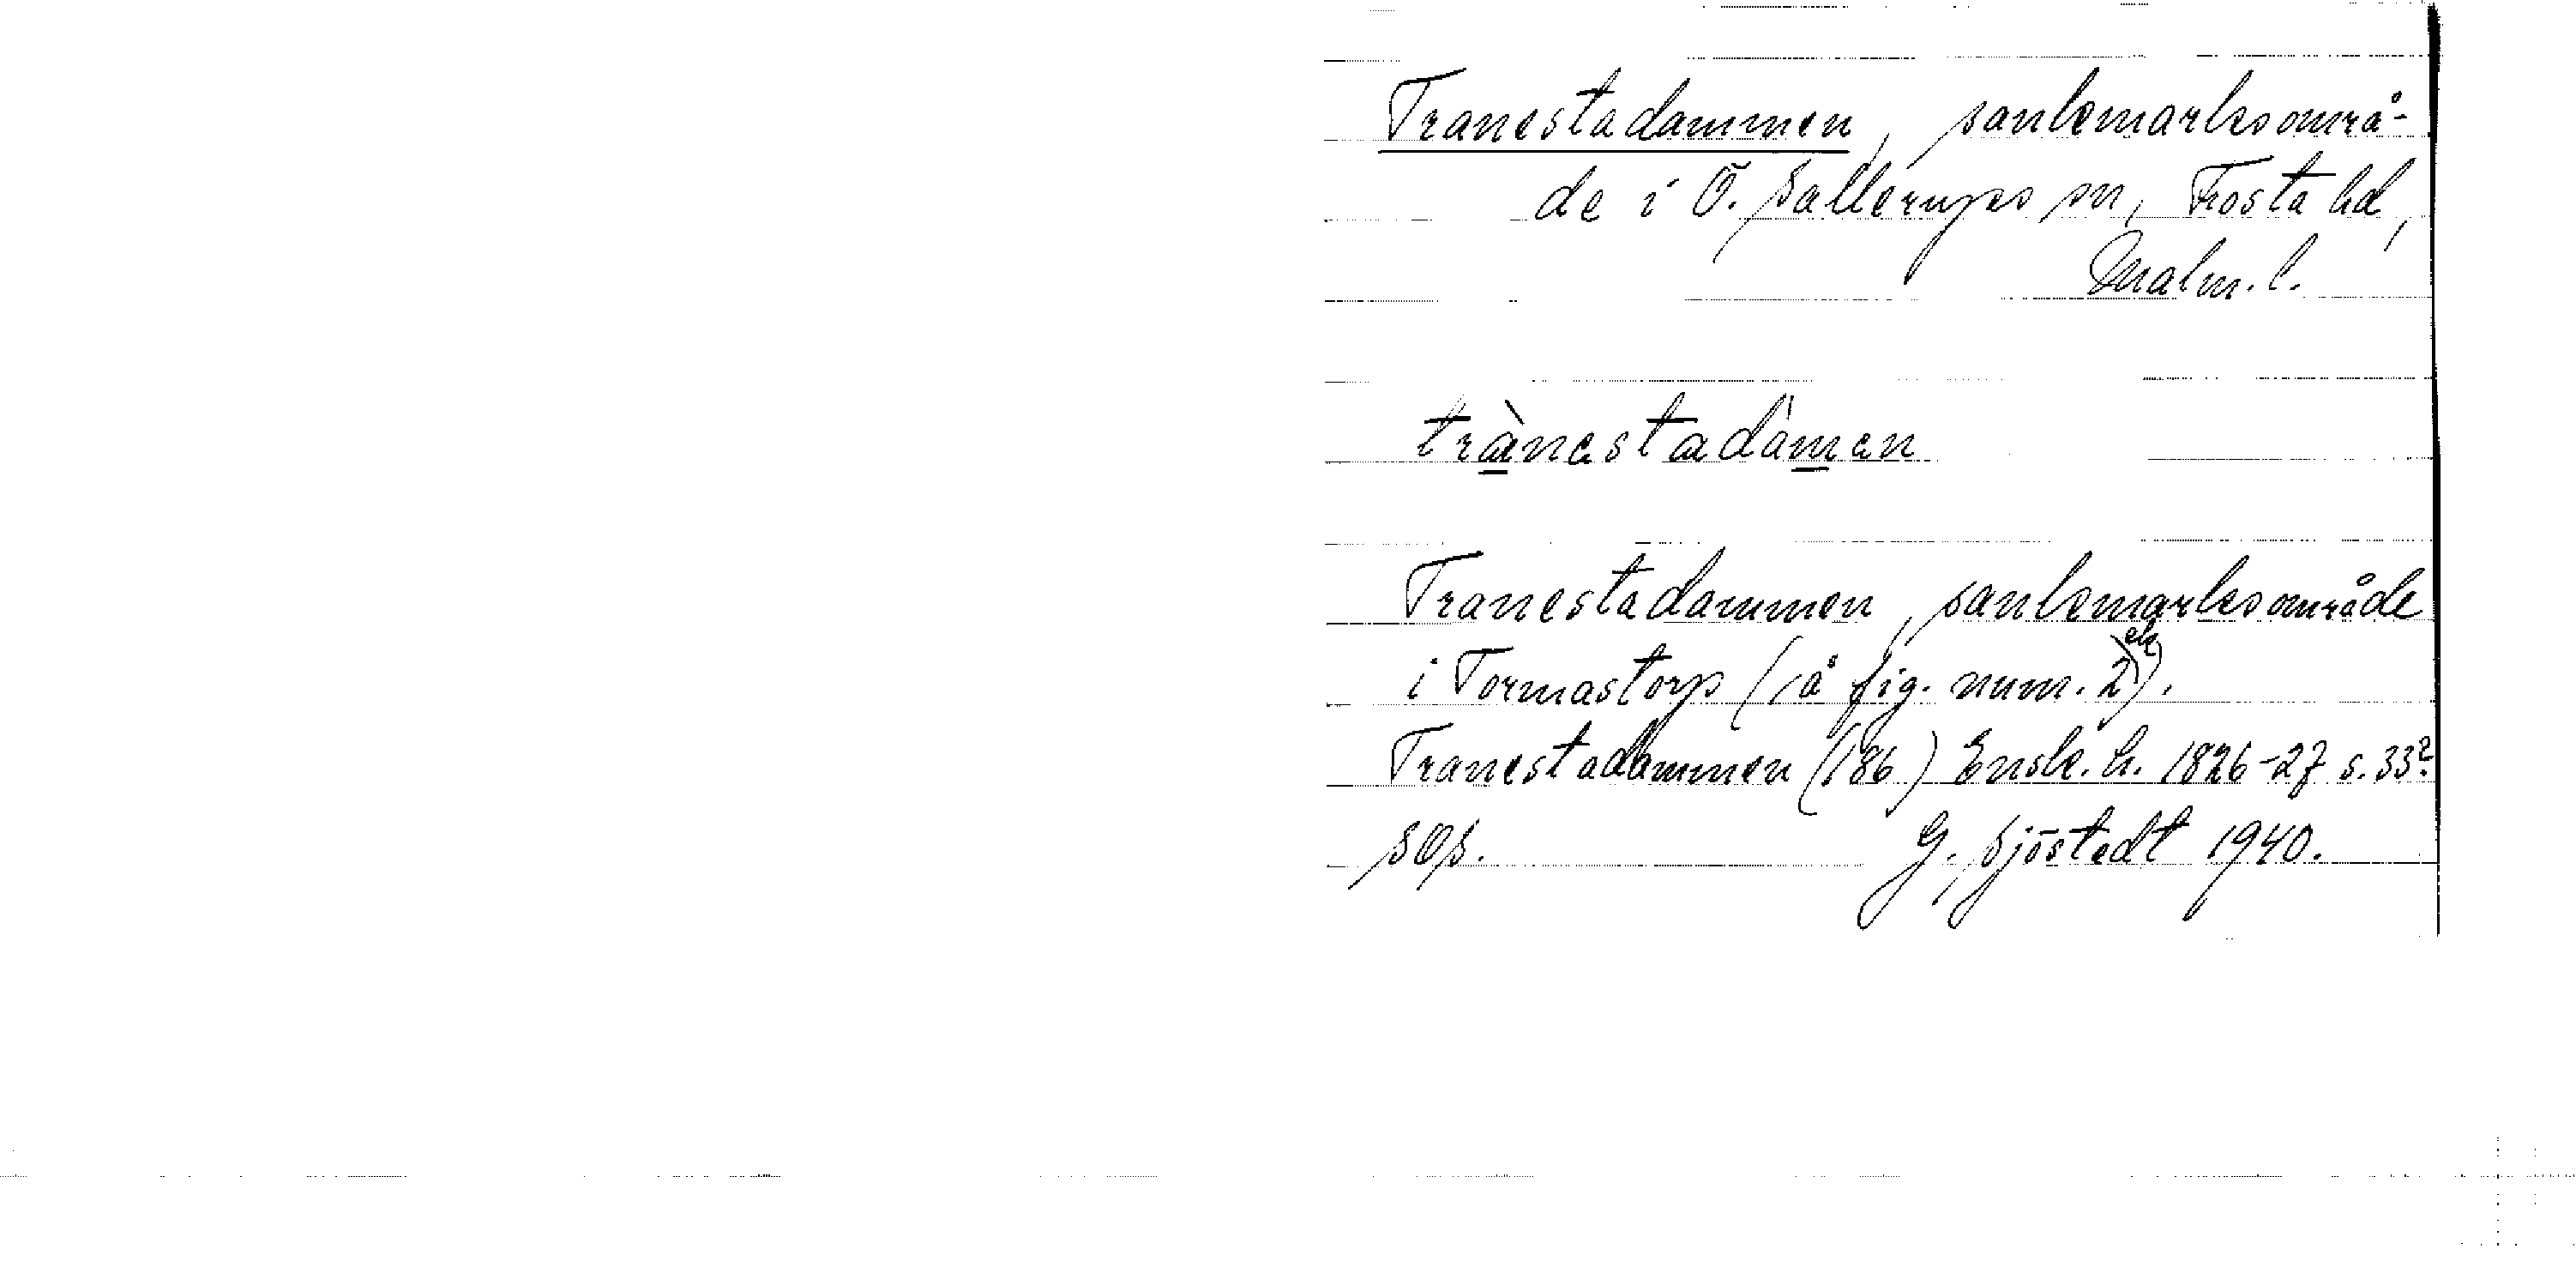 Tranestadammen, sankmarksområ-
de i Ö. Sallerups sn, Frosta hd,
Malm. l.
trànestadàmen
Tranestadammen, sankmarksområde
i Tormastorp (på fig. num. 2 ek).
Tranestadammen (186) Ensk. h. 1826-27 s. 33?
SOS. G. Sjöstedt 1940.